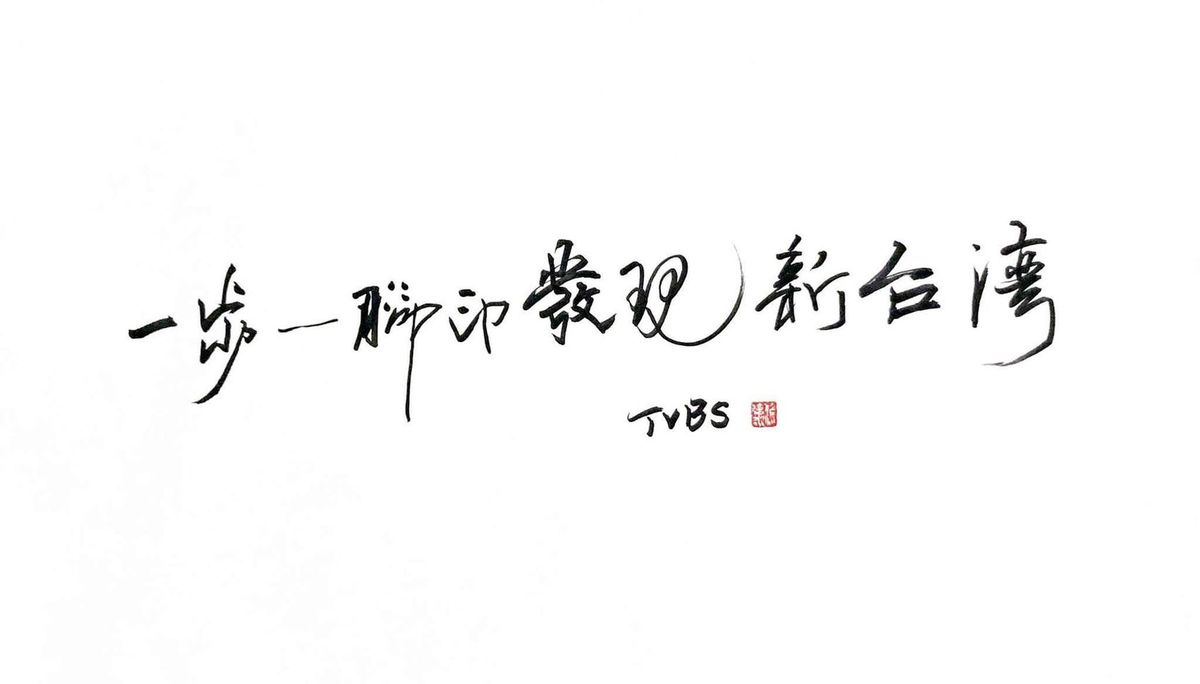 一步一腳印發現新台灣
TVBS